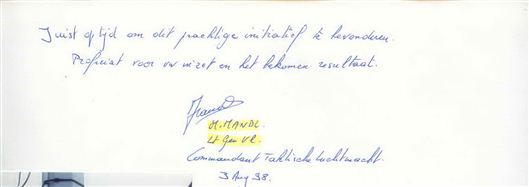 Juist op tijd om dit prachtige initiatief te bewonderen.
Proficiat voor uw inzet en het bekomen resultaat.
M. MANDL.
Lt Gen Vl.
Commandant Taktische Luchtmacht.
3 Aug 98.